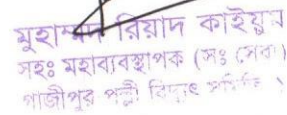 মুহাম্মদ রিয়াদ কাইয়ুম
সহঃ মহাব্যবস্থাপক (সঃ সেবা)
গাজীপুর পল্লী বিদ্যুৎ সমিতি-১